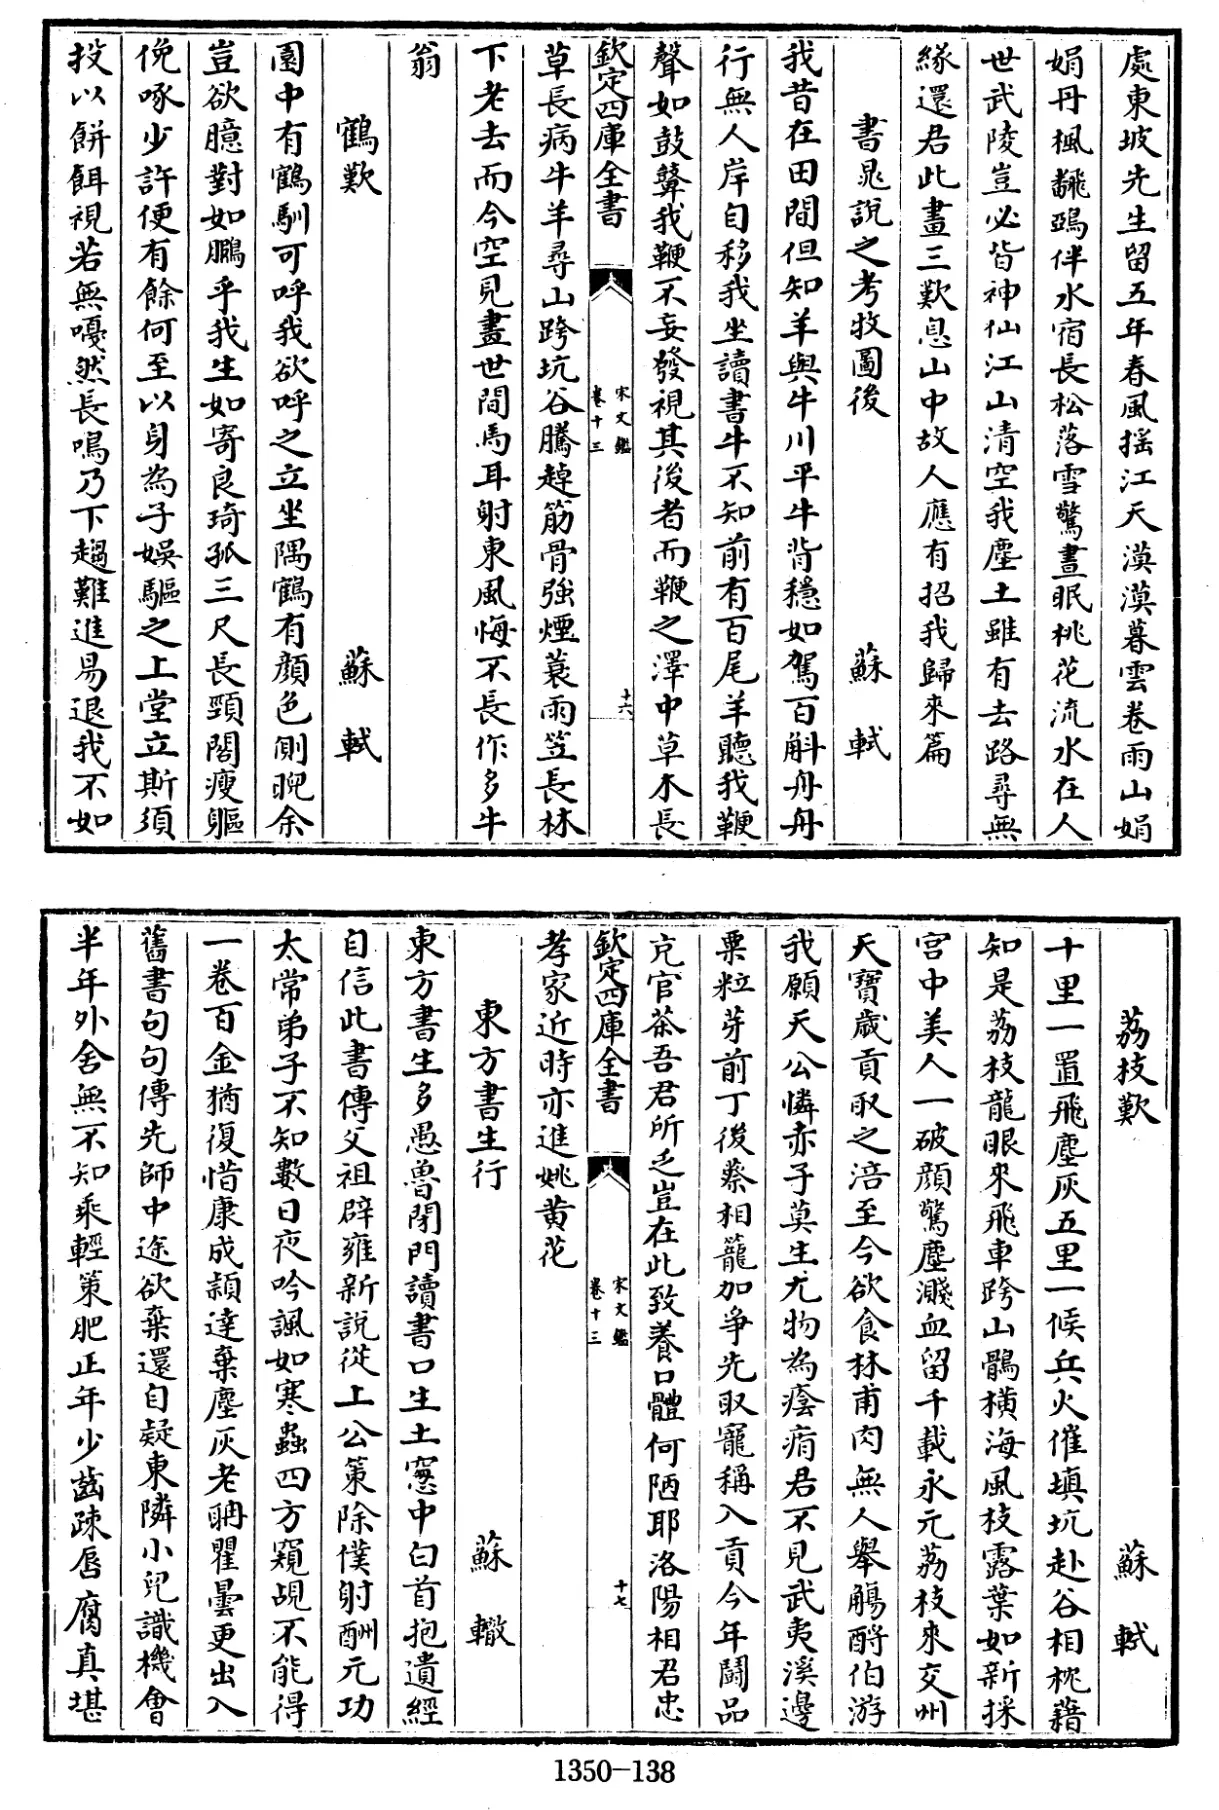 處東坡先生留五年春風揺江天漠漠暮雲卷雨山娟
娟丹楓翻鴉伴水宿長松落雪驚晝眠桃花流水在人
世武陵豈必皆神仙江山清空我塵土雖有去路尋無
緣還君此畫三歎息山中故人應有招我歸來篇
書晁說之考牧圖後 蘇軾
我昔在田間但知羊與牛川平牛背穩如駕百斛舟舟
行無人岸自移我坐讀書牛不知前有百尾羊聽我鞭
聲如鼓鼙我鞭不妄發視其後者而鞭之澤中草木長
欽定四庫全書 宋文鑑 卷十三 十六
草長病牛羊尋山跨坑谷騰趠筋骨強煙蓑雨笠長林
下老去而今空見畫世間馬耳射東風悔不長作多牛
翁
鶴歎 蘇軾
園中有鶴馴可呼我欲呼之立坐隅鶴有顔色側睨余
豈欲臆對如鵩乎我生如寄良琦孤三尺長頸閣瘦軀
俛啄少許便有餘何至以身為子娛驅之上堂立斯須
投以餅餌視若無嘎然長鳴乃下趨難進易退我不如
荔枝歎 蘇軾
十里一置飛塵灰五里一候兵火催填坑赴谷相枕藉
知是荔枝龍眼來飛車跨山鶻橫海風枝露葉如新採
宮中美人一破顔驚塵濺血留千載永元荔枝來交州
天寶歳貢取之涪至今欲食林甫肉無人舉觴酹伯游
我願天公憐赤子莫生尤物為瘡痏君不見武夷溪邊
粟粒芽前丁後蔡相籠加爭先取寵稱入貢今年鬪品
充官茶吾君所乏豈在此致養口體何陋耶洛陽相君忠
欽定四庫全書 宋文鑑 卷十三 十七
孝家近時亦進姚黄花
東方書生行 蘇轍
東方書生多愚魯閉門讀書口生土窻中白首抱遺經
自信此書傳父祖辟雍新說從上公策除僕射酬元功
太常弟子不知數日夜吟諷如寒蟲四方窺覘不能得
一卷百金猶復惜康成頴達棄塵灰老聃瞿曇更出入
舊書句句傳先師中途欲棄還自疑東隣小兒識機會
半年外舍無不知乘輕策肥正年少齒疎唇腐真堪
1350-138